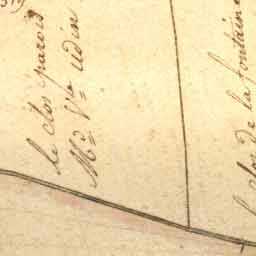 le clos parois
Md Vve udin
le clos de la fontaine